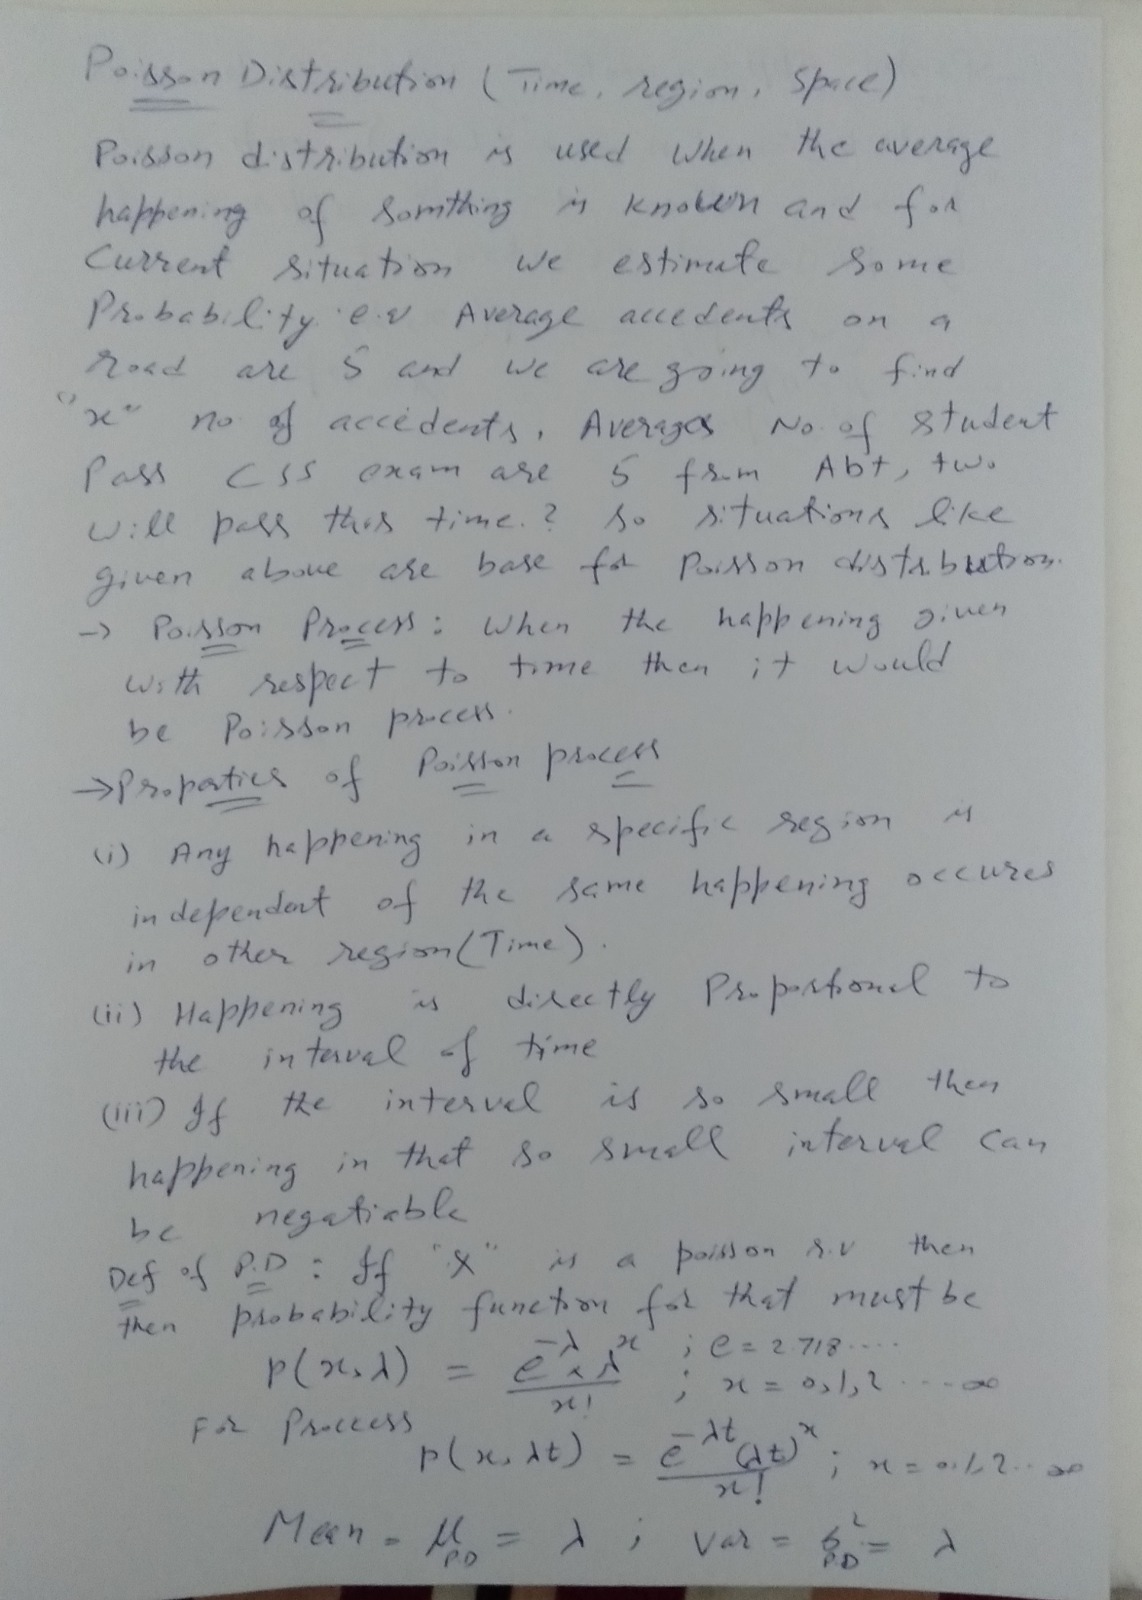 Poisson Distribution (Time, region, Space)
Poisson distribution is used when the average
happening of somthing is known and for
Current situation we estimate some
Probability. e.g Average accedents on a
road are 5 and we are going to find
"x" no of accedents, Averages No. of student
Pass CSS exam are 5 from Abt, two
will pass this time.? so situations like
given above are base for Poisson distribution.
→ Poisson Process: When the happening given
with respect to time then it would
be Poisson process.
→ Properties of Poisson process
(i) Any happening in a specific region is
independent of the same happening occures
in other region (Time).
(ii) Happening is directly Proportional to
the interval of time
(iii) If the interval is so small then
happening in that so small interval can
be negatiable
Def of P.D: If "X" is a poisson r.v then
then probability function for that must be
p(x,λ) = e^-λ × λ^x / x! ; e = 2.718....
; x = 0,1,2 ....∞
For Process
p(x,λt) = e^-λt (λt)^x / x! ; x = 0,1,2...∞
Mean = μ_P.D = λ ; Var = σ²_P.D = λ